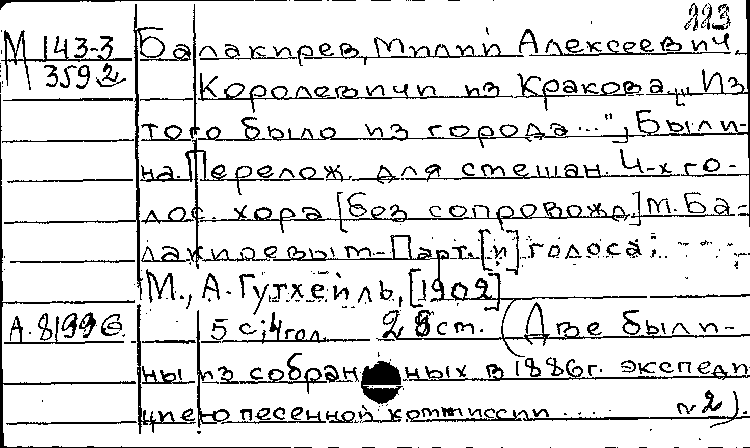 223
М 143-3 Балакирев, Милий Алексеевич.
М 3592 Королевичи из Кракова. „Из
того было из города...", Были-
на. Перелож. для смешан. 4-х го-
лос. хора [без сопровожд.] М. Ба-
лакиревым. - Парт. [и] голоса.
М., А. Гутхейль, [1902]
А. 8199б. 5 с.; 4 гол. 28 см. (Две были-
ны из собранных в 1886 г. экспеди
цией песенной коммиссии .... №2).